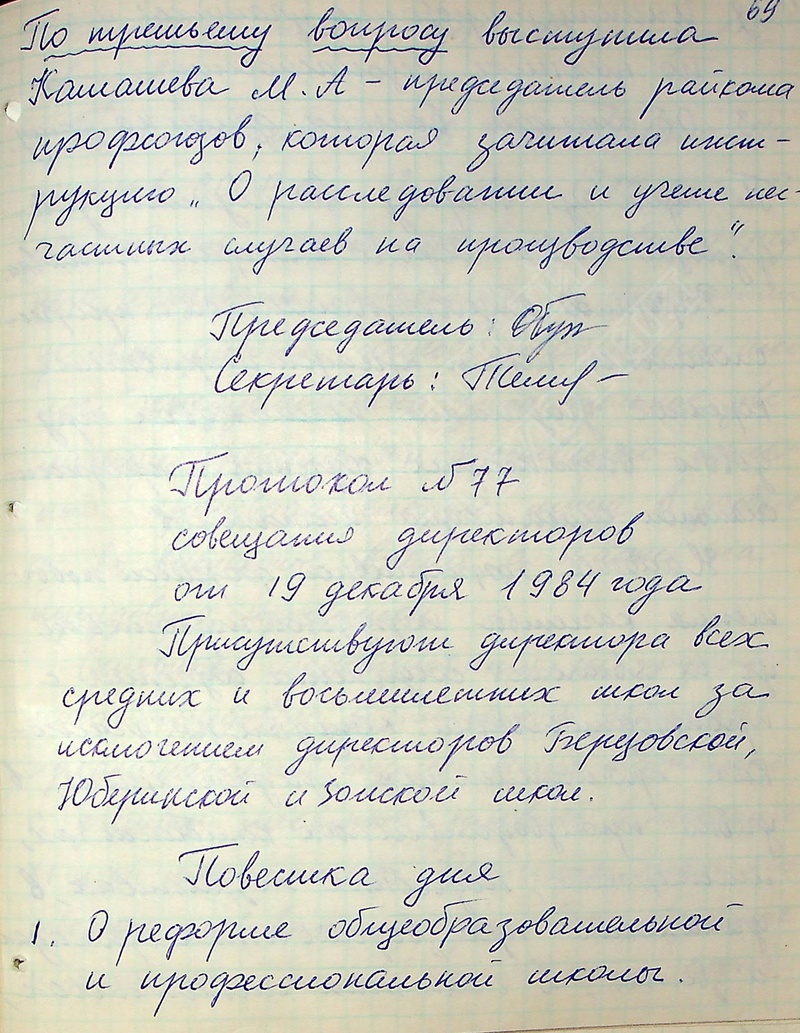 69
По третьему вопросу выступила
Камашева М.А – председатель райкома
профсоюзов, которая зачитала инст-
рукцию „О расследовании и учете нес-
частных случаев на производстве".
Председатель:
Секретарь:
Протокол № 77
совещания директоров
от 19 декабря 1984 года
Присутствуют директора всех
средних и восьмилетних школ за
исключением директоров Березовской,
Юберинской и Зонской школ.
Повестка дня
1. О реформе общеобразовательной
и профессиональной школы.